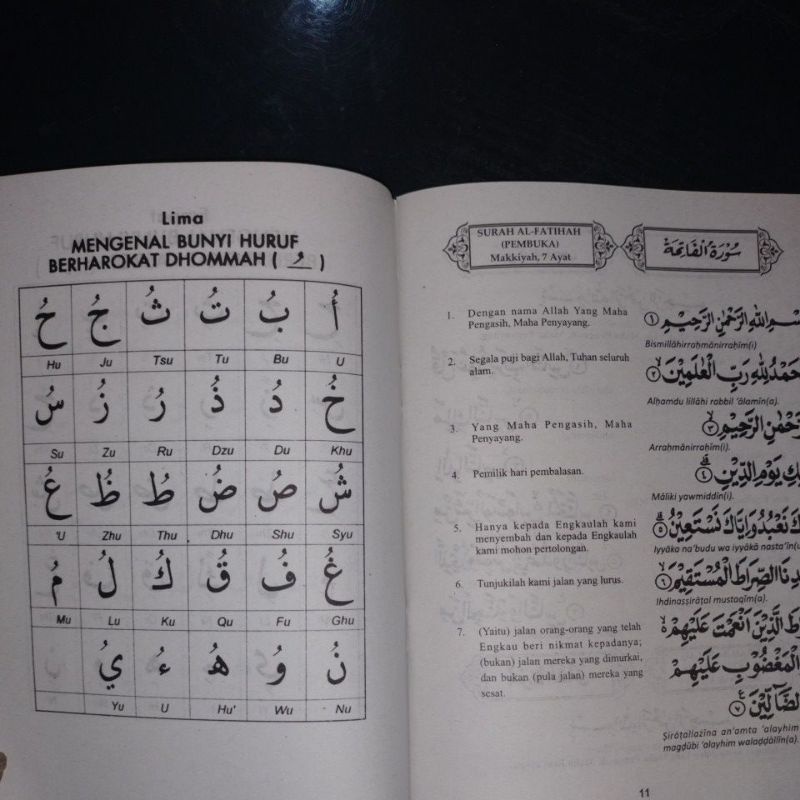 Lima
MENGENAL BUNYI HURUF
BERHAROKAT DHOMMAH ( ـُ )
أُ بُ تُ ثُ جُ حُ
Hu Ju Tsu Tu Bu U
خُ دُ ذُ رُ زُ سُ
Su Zu Ru Dzu Du Khu
شُ صُ ضُ طُ ظُ عُ
'U Zhu Thu Dhu Shu Syu
غُ فُ قُ كُ لُ مُ
Mu Lu Ku Qu Fu Ghu
نُ وُ هُ ءُ يُ
Yu U Hu' Wu Nu
SURAH AL-FATIHAH
(PEMBUKA)
Makkiyah, 7 Ayat
سُوْرَةُ الْفَاتِحَةِ
1. Dengan nama Allah Yang Maha
Pengasih, Maha Penyayang.
2. Segala puji bagi Allah, Tuhan seluruh
alam.
3. Yang Maha Pengasih, Maha
Penyayang.
4. Pemilik hari pembalasan.
5. Hanya kepada Engkaulah kami
menyembah dan kepada Engkaulah
kami mohon pertolongan.
6. Tunjukilah kami jalan yang lurus.
7. (Yaitu) jalan orang-orang yang telah
Engkau beri nikmat kepadanya;
(bukan) jalan mereka yang dimurkai,
dan bukan (pula jalan) mereka yang
sesat.
اللّٰهِ الرَّحْمٰنِ الرَّحِيْمِ ١
Bismillāhirraḥmānirraḥīm(i)
لِلّٰهِ رَبِّ الْعٰلَمِيْنَ ٢
Alḥamdu lillāhi rabbil 'ālamīn(a).
الرَّحِيْمِ ٣
Arraḥmānirraḥīm(i).
يَوْمِ الدِّيْنِ ٤
Māliki yawmiddīn(i).
نَعْبُدُ وَاِيَّاكَ نَسْتَعِيْنُ ٥
Iyyāka na'budu wa iyyāka nasta'īn(u
الصِّرَاطَ الْمُسْتَقِيْمَ ٦
Ihdinaṣṣirāṭal mustaqīm(a).
الَّذِيْنَ اَنْعَمْتَ عَلَيْهِمْ
الْمَغْضُوْبِ عَلَيْهِمْ
الضَّاۤلِّيْنَ ٧
Ṣirāṭallażīna an'amta 'alayhim
magḍūbi 'alayhim walaḍḍāllīn(a).
11